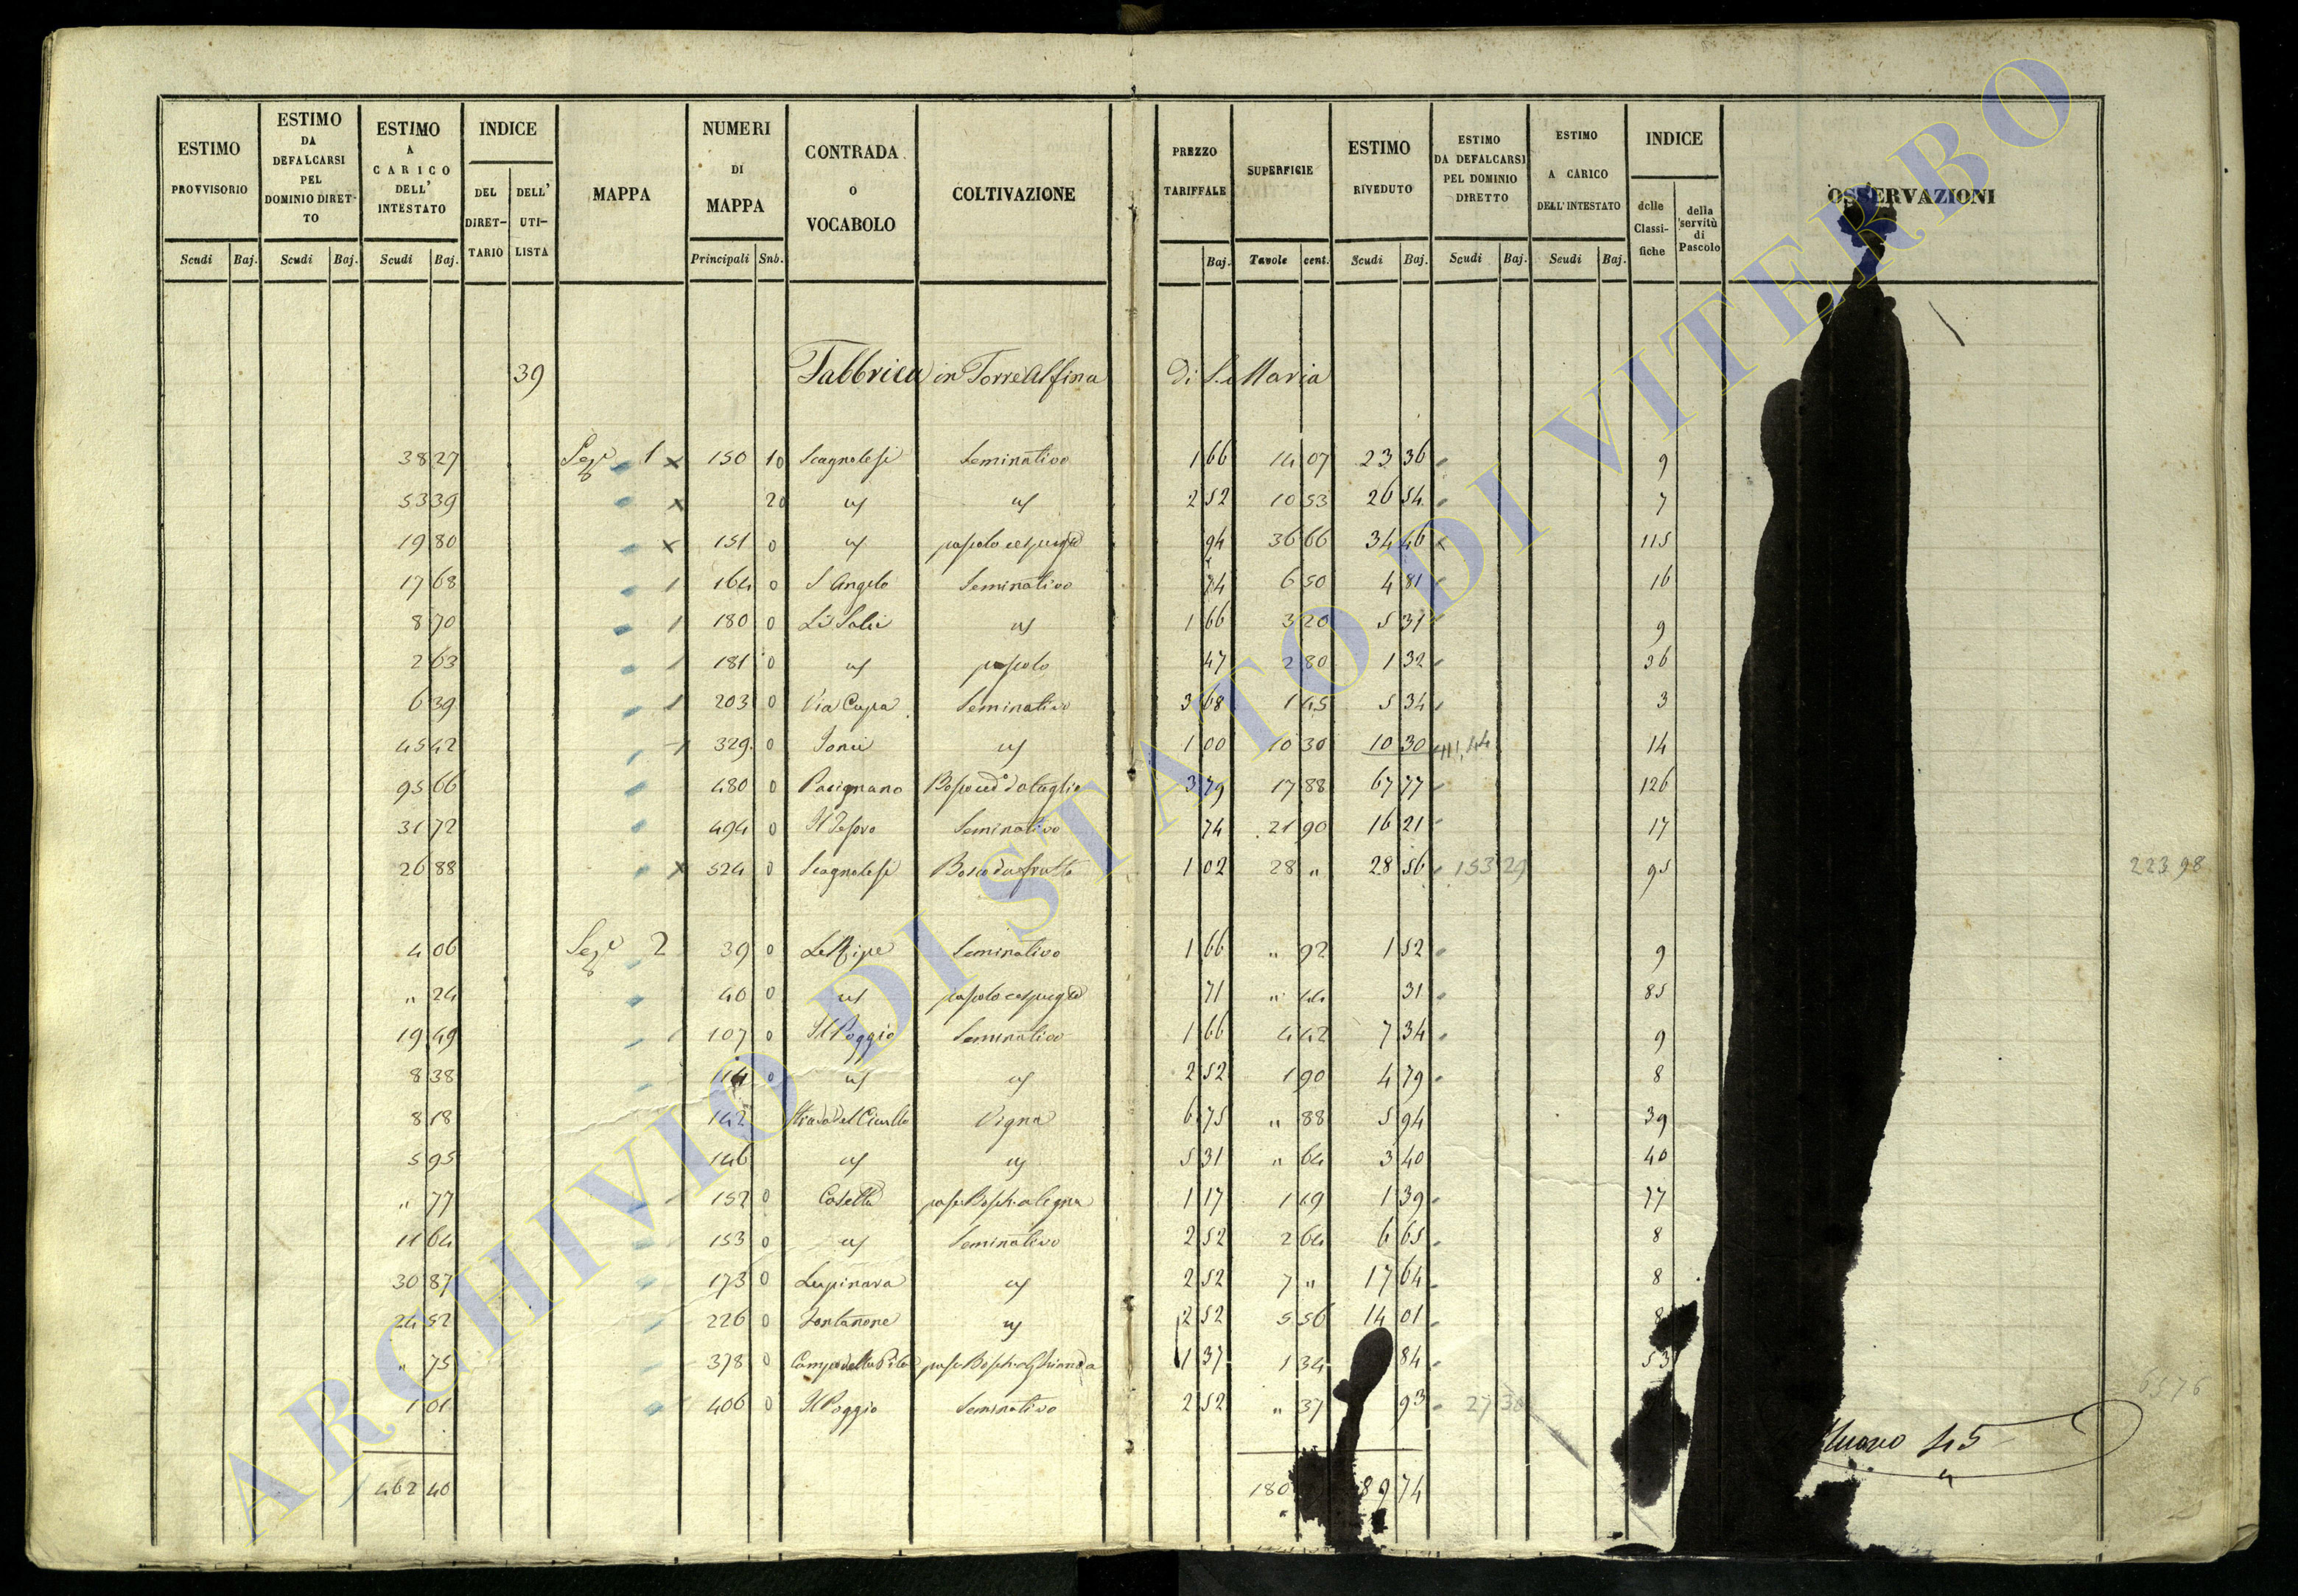 ESTIMO PROVVISORIO Scudi Baj.
ESTIMO DA DEFALCARSI PEL DOMINIO DIRETTO Scudi Baj.
ESTIMO A CARICO DELL' INTESTATO Scudi Baj.
INDICE DEL DIRETTARIO DELL' UTILISTA
MAPPA
NUMERI DI MAPPA Principali Sub.
CONTRADA O VOCABOLO
COLTIVAZIONE
PREZZO TARIFFALE Baj.
SUPERFICIE Tavole cent.
ESTIMO RIVEDUTO Scudi Baj.
ESTIMO DA DEFALCARSI PEL DOMINIO DIRETTO Scudi Baj.
ESTIMO A CARICO DELL' INTESTATO Scudi Baj.
INDICE delle Classifiche della servitù di Pascolo
OSSERVAZIONI
39 Fabbrica in Torre Alfina di S. Maria
38 27 Seze 1 x 150 10 Scagnolesi Seminativo 1 66 14 07 23 36 9
53 39 x 20 " " 2 52 10 53 26 54 7
19 80 x 151 0 " pascolo cespugto 94 36 66 34 46 x 115
17 68 1 164 0 S Angelo Seminativo 74 6 50 4 81 16
8 70 1 180 0 Li Salci " 1 66 3 20 5 31 9
2 63 181 0 " pascolo 47 2 80 1 32 36
6 39 1 203 0 Via Cupa Seminativo 3 68 1 45 5 34 3
45 42 1 329 0 " 1 00 10 30 10 30 111,44 14
95 66 480 0 Pacignano 3 79 17 88 67 77 126
31 72 494 0 Il Tesoro Seminativo 74 21 90 16 21 17
26 88 x 524 0 Scagnolesi Bosco da frutto 1 02 28 " 28 56 153 29 95 223 98
4 06 Sezе 2 39 0 Le Ripe Seminativo 1 66 " 92 1 52 9
" 24 40 0 " pascolo cespugto 71 " 44 31 85
19 49 107 0 Il Poggio Seminativo 1 66 4 42 7 34 9
8 38 114 0 " " 2 52 1 90 4 79 8
8 18 142 Strada del Ciarlo Vigna 6 75 " 88 5 94 39
5 95 146 " " 5 31 " 64 3 40 40
" 77 152 0 Casella 1 17 1 19 1 39 77
11 64 153 0 " Seminativo 2 52 2 64 6 65 8
30 87 173 0 Lupinara " 2 52 7 " 17 64 8
24 52 226 0 Fontanone " 2 52 5 56 14 01 8
" 75 378 0 Campo della Pila 1 37 1 34 84 53
1 01 406 0 Il Poggio Seminativo 2 52 " 37 93 27 30 65 76
Nuovo 45
462 40 180 89 74
ARCHIVIO DI STATO DI VITERBO